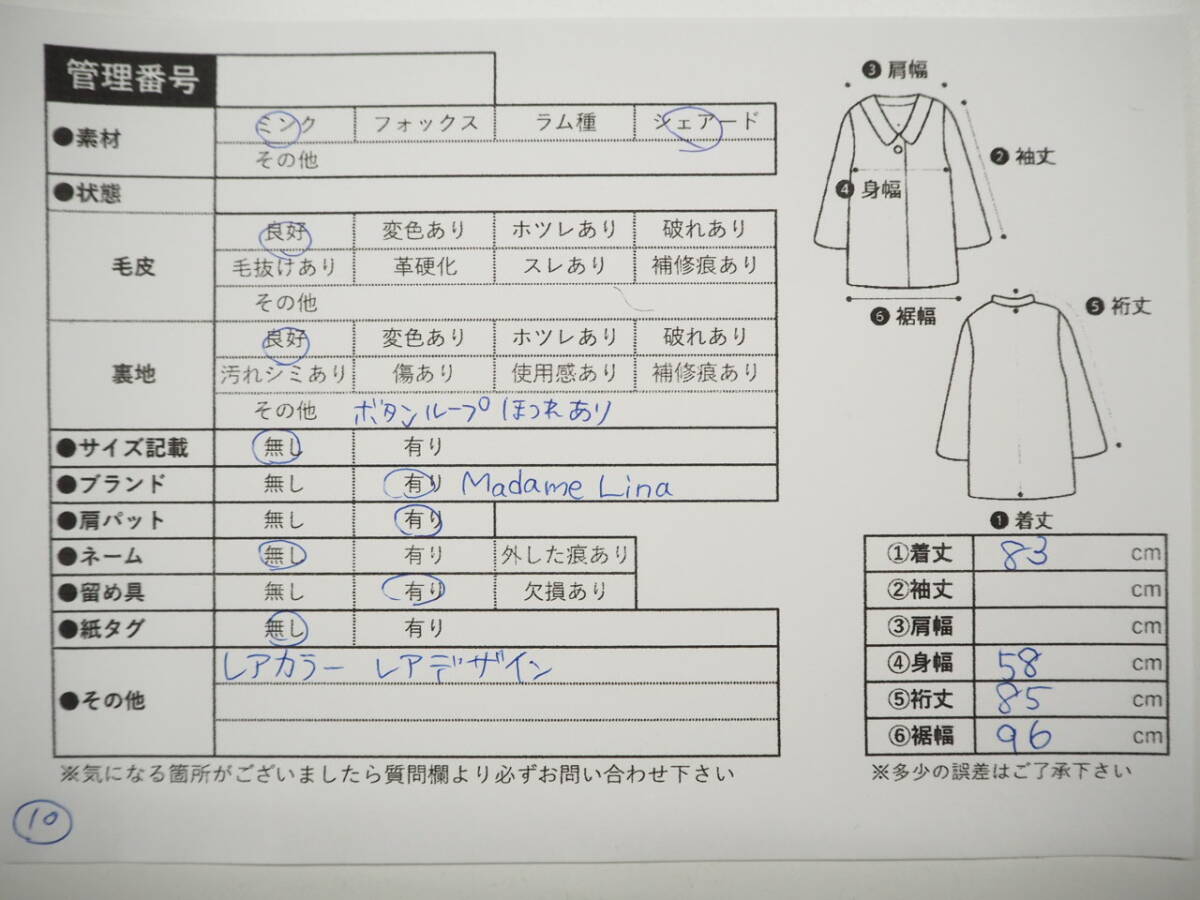 管理番号
●素材 ミンク フォックス ラム種 シェアード
その他
●状態
毛皮 良好 変色あり ホツレあり 破れあり
毛抜けあり 革硬化 スレあり 補修痕あり
その他
裏地 良好 変色あり ホツレあり 破れあり
汚れシミあり 傷あり 使用感あり 補修痕あり
その他 ボタンループほつれあり
●サイズ記載 無し 有り
●ブランド 無し 有り Madame Lina
●肩パット 無し 有り
●ネーム 無し 有り 外した痕あり
●留め具 無し 有り 欠損あり
●紙タグ 無し 有り
●その他 レアカラー レアデザイン
※気になる箇所がございましたら質問欄より必ずお問い合わせ下さい
10
❸肩幅
❷袖丈
❹身幅
❻裾幅
❺裄丈
❶着丈
①着丈 83 cm
②袖丈 cm
③肩幅 cm
④身幅 58 cm
⑤裄丈 85 cm
⑥裾幅 96 cm
※多少の誤差はご了承下さい